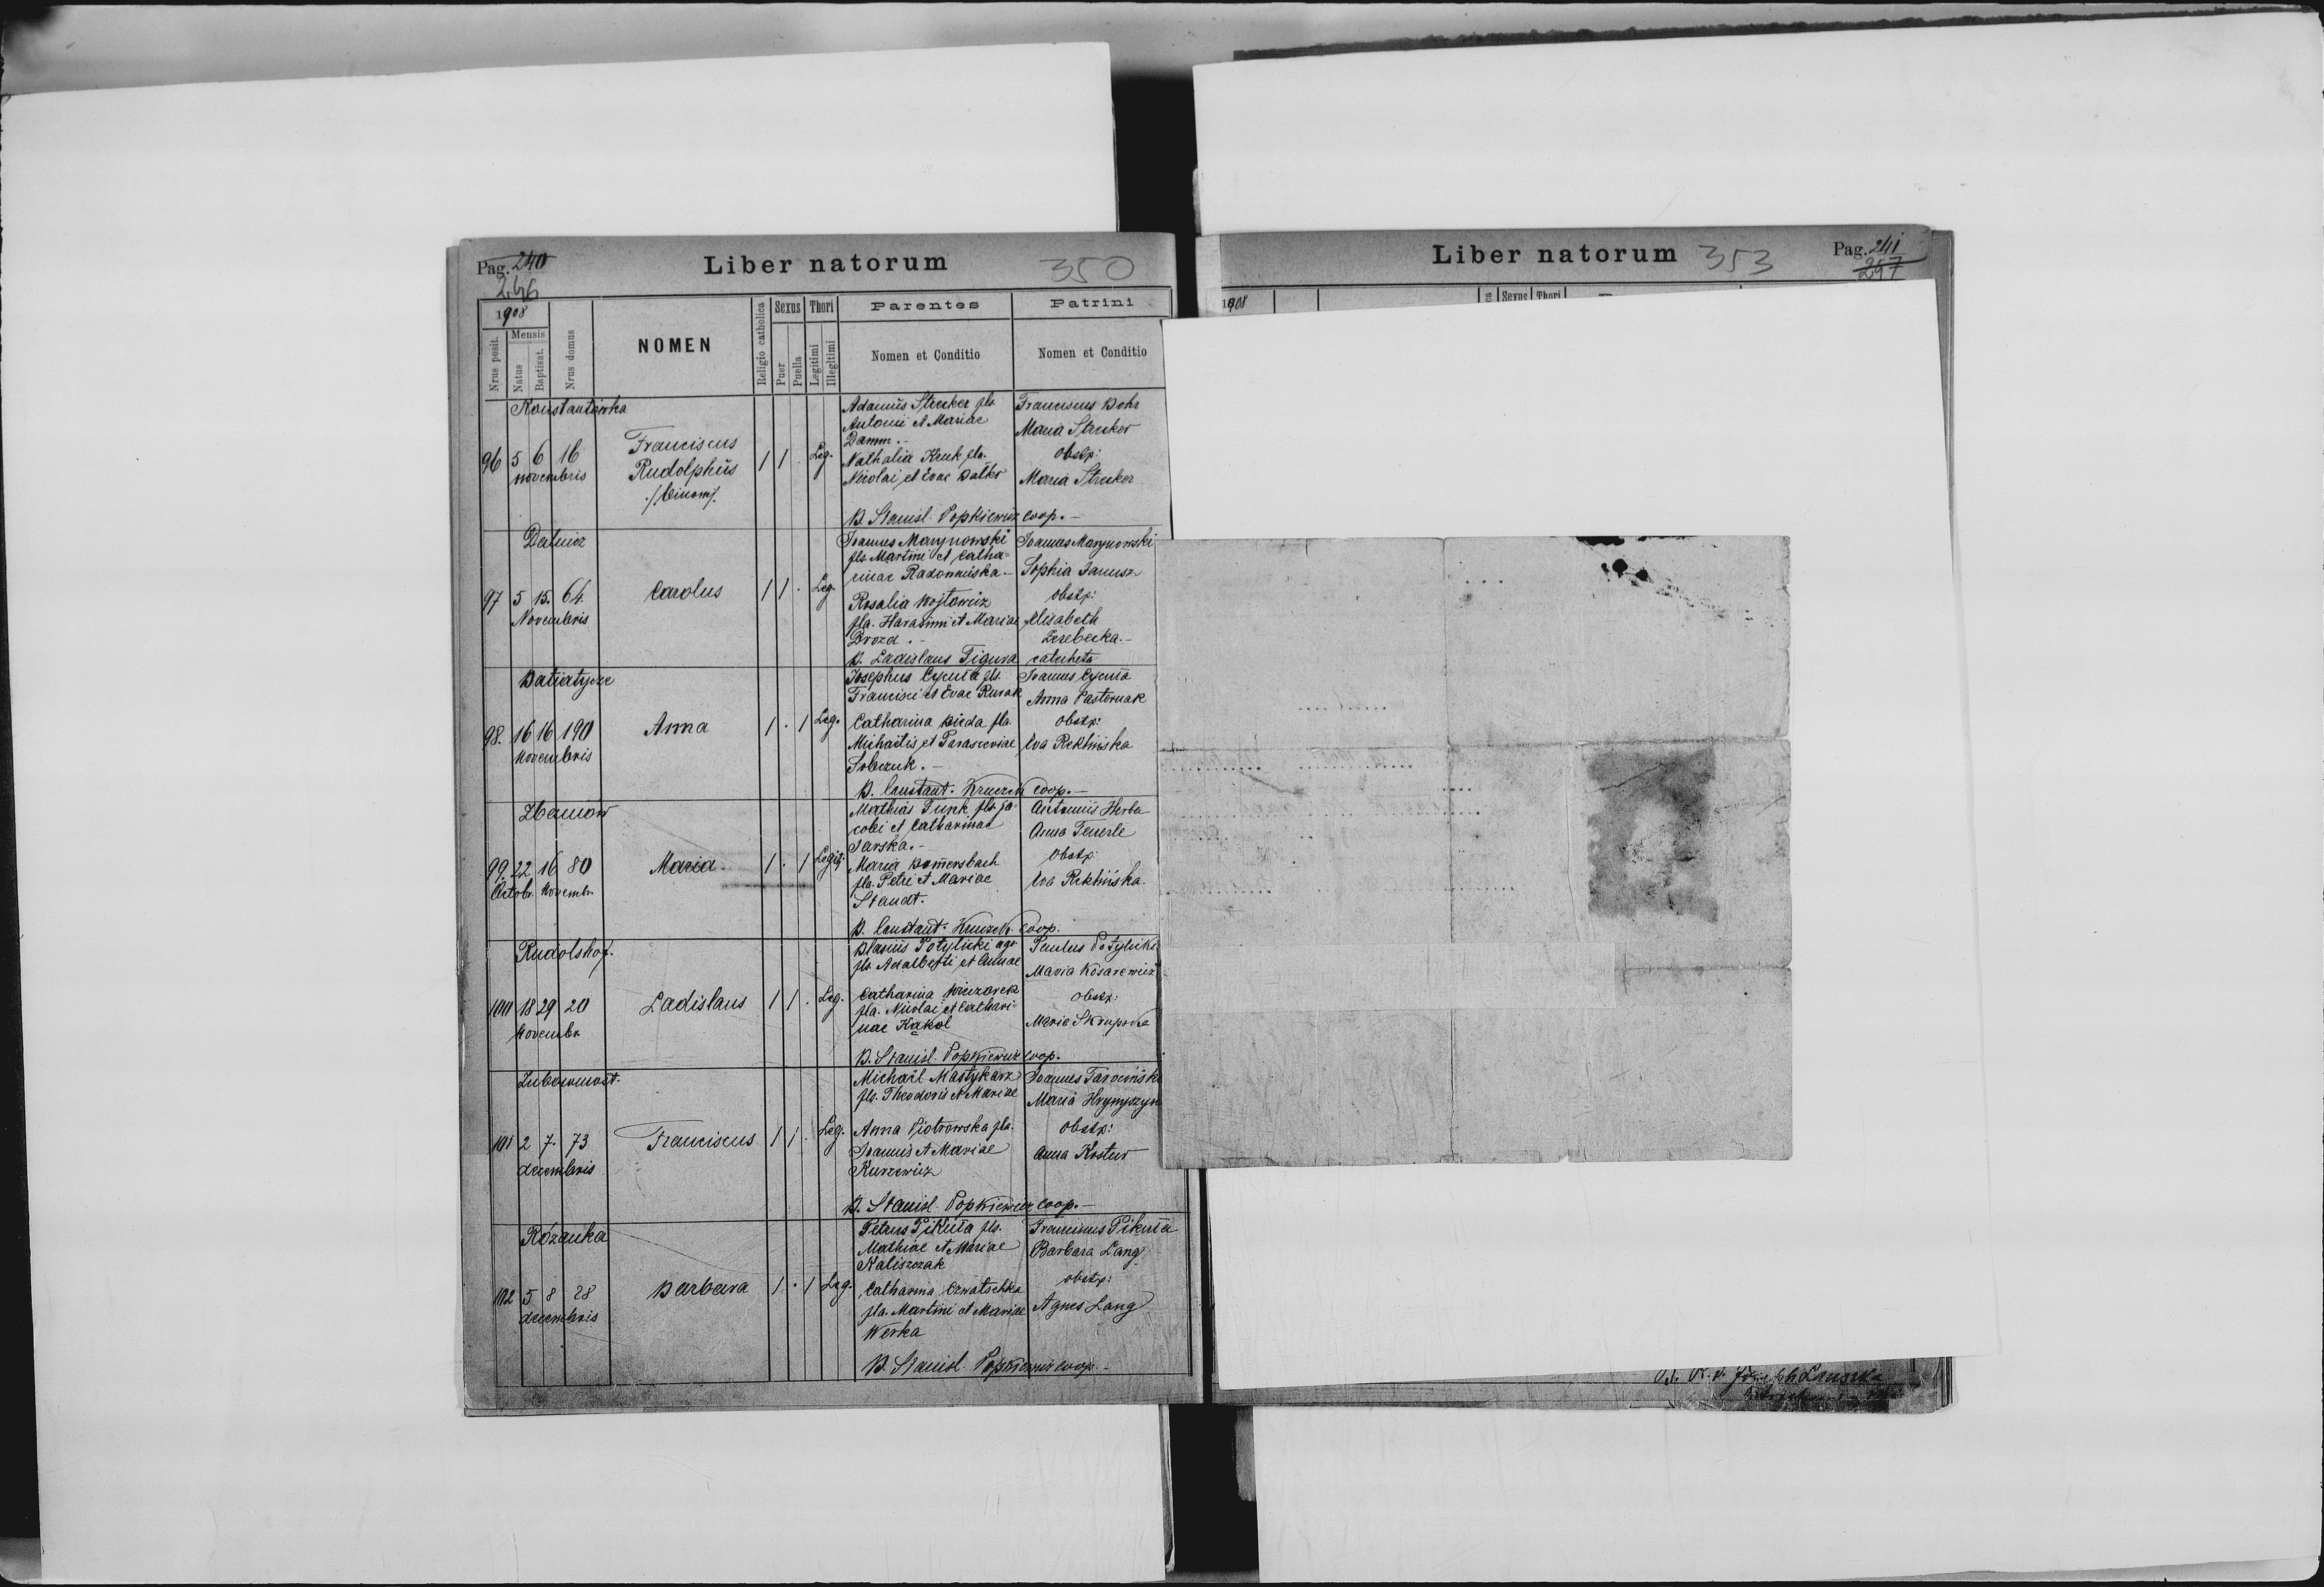 Pag. 240
246
Liber natorum
350
1908
Nrus posit.
Mensis
Natus
Baptisat.
Nrus domus
NOMEN
Religio catholica
Sexus
Puer
Puella
Thori
Legitimi
Illegitimi
Parentes
Nomen et Conditio
Patrini
Nomen et Conditio
96 5 6 16
novembris
Franciscus
Rudolphus
/binom/.
1 1 . Leg.
Adamus Strecker fls.
Antonii et Mariae
Damm.-
Nathalia Kruk fla.
Nicolai et Evae
Franciscus Bohr
Maria Strecker
obstx:
Maria Strecker
B. Stanisl. Popkiewicz coop.-
Dalnicz
97 5 15. 64
Novembris
Carolus
1 1 . Leg.
Joannes Marynowski
fls. Martini et Catha-
rinae
Rosalia Wojtowicz
fla. Harasimi et Mariae
Drozd.-
Joannes Marynowski
Sophia Janusz
obstx:
Elisabeth
Zerebecka.-
B. Ladislaus Figura catecheta
Batiatycze
98. 16 16 190
Novembris
Anna
1 . 1 Leg.
Josephus Cycuła fls.
Francisci et Evae Kurak
Catharina Bieda fla.
Michaelis et Parasceviae
Sobczuk.-
Joannes Cycuła
Anna Pasternak
obstx:
Eva Reklińska
B. Constant. Kruczek coop.-
99. 22 16 80
Octobr. Novembr.
Maria.
1 . 1 Legit.
Mathias Funk fls. Ja-
cobi et Catharinae
Jarska.-
Maria Bomersbach
fla. Petri et Mariae
Staudt.
Antonius Herba
Anna Feuerle
obstx:
Eva Reklińska.
B. Constant. Kruczek coop.
Rudolshof.
100 18 29 20
Novembr.
Ladislaus
1 1 . Leg.
Blasius Potylicki agr.
fls. Adalberti et Annae
Catharina Wieczorek
fla. Nicolai et Cathari-
nae Kąkol
Paulus Potylicki
Maria Kosarewicz
obstx:
Maria
B. Stanisl. Popkiewicz coop.
101 2 7. 73
decembris
Franciscus
1 1 . Leg.
Michaël Mastykarz
fls. Theodoris et Mariae
Anna Piotrowska fla.
Joannis et Mariae
Kurzewicz
Joannes
Maria Hrynyszyn
obstx:
Anna Kostur
B. Stanisl. Popkiewicz coop.-
Różanka
102 5 8 28
decembris
Barbara
1 . 1 Leg.
Petrus Pikuła fls.
Mathiae et Mariae
Naliszczak
Catharina Czwatschka
fla. Martini et Mariae
Werka
Franciscus Pikuła
Barbara Lang
obstx:
Agnes Lang
B. Stanisl. Popkiewicz coop.-
Liber natorum
353
Pag. 241
247
1908
Sexus
Thori